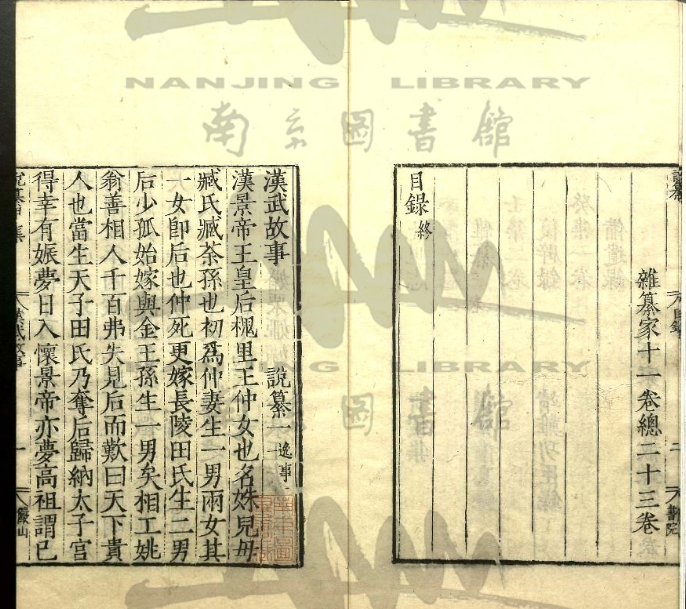 NANJING LIBRARY
南京圖書館
雜纂家十一卷總二十三卷
目錄終
漢武故事 說纂一 逸事
漢景帝王皇后槐里王仲女也名姝兒母
臧氏臧荼孫也初爲仲妻生一男兩女其
一女即后也仲死更嫁長陵田氏生二男
后少孤始嫁與金王孫生一男矣相工姚
翁善相人千百弗失見后而歎曰天下貴
人也當生天子田氏乃奪后歸納太子宮
得幸有娠夢日入懷景帝亦夢高祖謂己